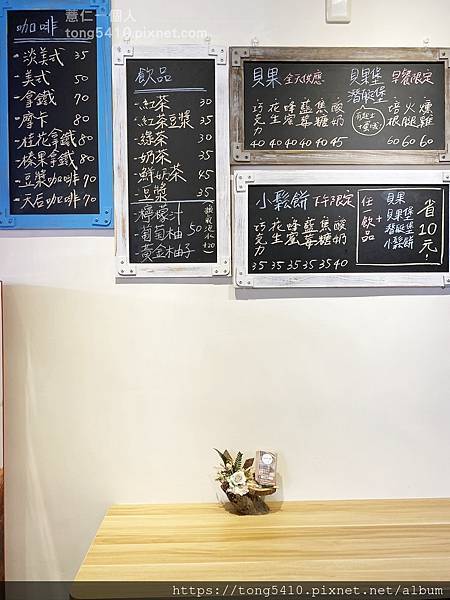 薏仁一個人
tong5410.pixnet.net
咖啡
淡美式 35
美式 50
拿鐵 70
摩卡 80
桂花拿鐵 80
榛果拿鐵 80
豆漿咖啡 70
天后咖啡 70
飲品
紅茶 30
紅茶豆漿 35
綠茶 30
奶茶 35
鮮奶茶 45
豆漿 35
檸檬汁
葡萄柚 50
黃金柚子
(換氣泡水+20)
貝果 全天供應
巧克力 花生 蜂蜜 藍莓 焦糖 酸奶
40 40 40 40 40 45
貝果堡
潛艇堡
早餐限定
培根 火腿 燻雞
60 60 60
小鬆餅 下午限定
巧克力 花生 蜂蜜 藍莓 焦糖 酸奶
35 35 35 35 35 40
任一飲品
+
貝果
貝果堡
潛艇堡
小鬆餅
省10元!
https://tong5410.pixnet.net/album